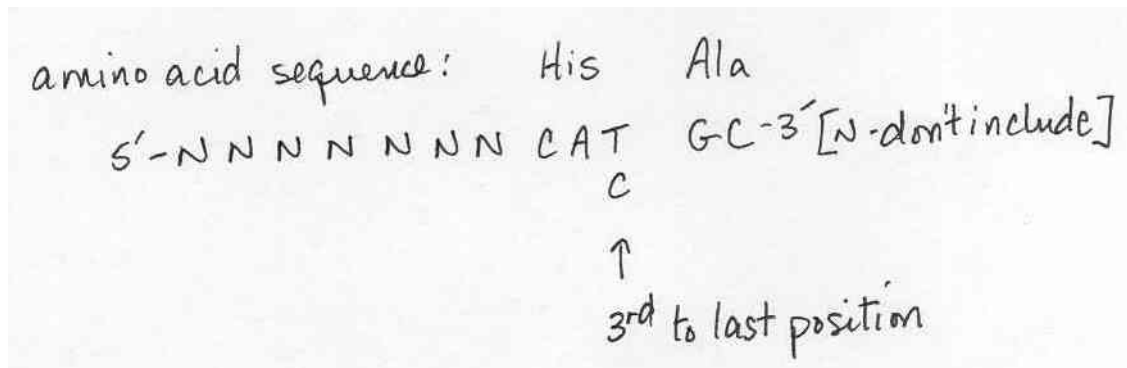 amino acid sequence: His Ala
5′-N N N N N N N CAT GC-3′ [N-don't include]
C
↑
3rd to last position